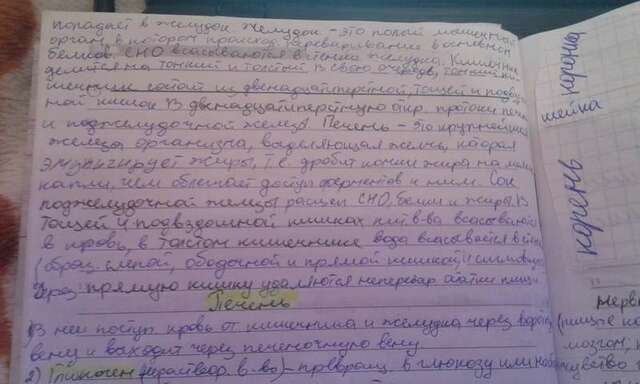 попадает в желудок Желудок - это полый мышечный
орган, в котором происход. переваривание в основном
белков. СНО всасываются в стенки желудка. Кишечник
делится на тонкий и толстый В свою очередь, тонкий ки-
шечник состоит из двенадцатиперстной, тощей и подвздош
ной кишок В двенадцатиперстную откр. протоки печени
и поджелудочной железы. Печень - это крупнейшая
железа организма, выделяющая желчь, которая
эмульгирует жиры, т.е. дробит капли жира на мелкие
капли, чем облегчает доступ ферментов к ним. Сок
поджелудочной железы расщеп СНО, белки и жиры. В
тощей и подвздошной кишках пит. в-ва всасываются
в кровь, в толстом кишечнике вода всасывается в
(образ. слепой, ободочной и прямой кишкой)
Через прямую кишку удаляются неперевар остатки пищи
Печень
1) В неё поступ. кровь от кишечника и желудка через
вену и выходит через печеночную вену
2) (нераствор. в-во) - превращ. в глюкозу или
коронка
шейка
корень
нерв
мозгом,